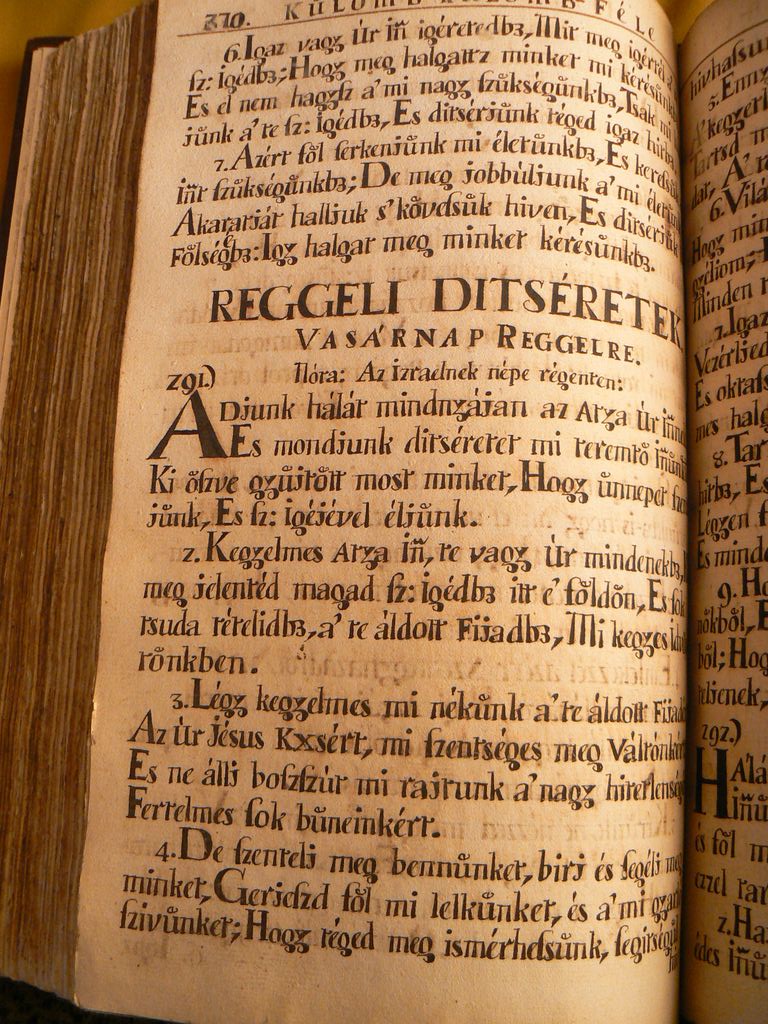 370. KÜLÖMB KÜLÖMB FÉLE
6. Igaz vagy Úr iñ igéretedbꝫ, Mir meg igértél
ſz: igédbꝫ; Hogy meg halgatz minket mi kérésünk
Es el nem hagyſz a' mi nagy ſzükségünkbꝫ, Tsak mi
jünk a' te ſz: igédbꝫ, Es ditsérjünk téged igaz hitbꝫ
7. Azért föl ſerkenjünk mi életünkbꝫ, Es keres
iñt ſzükségünkbꝫ; De meg jobbúljunk a' mi élet
Akaratját halljuk s' kövessük hiven, Es ditsérjük
Fölségbꝫ: Igy halgat meg minket kérésünkbꝫ.
REGGELI DITSÉRETEK
VASÁRNAP REGGELRE.
291.) Nóta: Az izraelnek népe régenten:
ADjunk hálát mindnyájan az Atya Úr iñn
Es mondjunk ditséretet mi teremtö iñünk
Ki öſzve gyüjtött most minket, Hogy ünnepet
jünk, Es ſz: igéjével éljünk.
2. Kegyelmes Atya iñ, te vagy Úr mindenekbꝫ,
meg jelentéd magad ſz: igédbꝫ itt e' földön, Es ſok
tsuda tételidbꝫ, a' te áldott Fijadbꝫ, Mi kegyes
tönkben.
3. Légy kegyelmes mi nékünk a' te áldott Fijad
Az Úr Jésus Kxsért, mi ſzentséges meg Váltónk
Es ne állj boſzſzút mi rajtunk a' nagy hitetlenség
Fertelmes ſok büneinkért.
4. De ſzentelj meg bennünket, birj és ſegélj meg
minket, Gerjeſzd föl mi lelkünket, és a' mi
ſzivünket; Hogy téged meg ismérheſsünk, ſegitség
5. Enny
6. Vilá
Hogy min
Minden
7. Igaz
Es
mes halg
8. Tar
hitbꝫ, Es
Légyen
Es mind
9. Ho
ból; Hog
292.)
HAlá
és föl m
ezzel
2. Ha
édes iñü